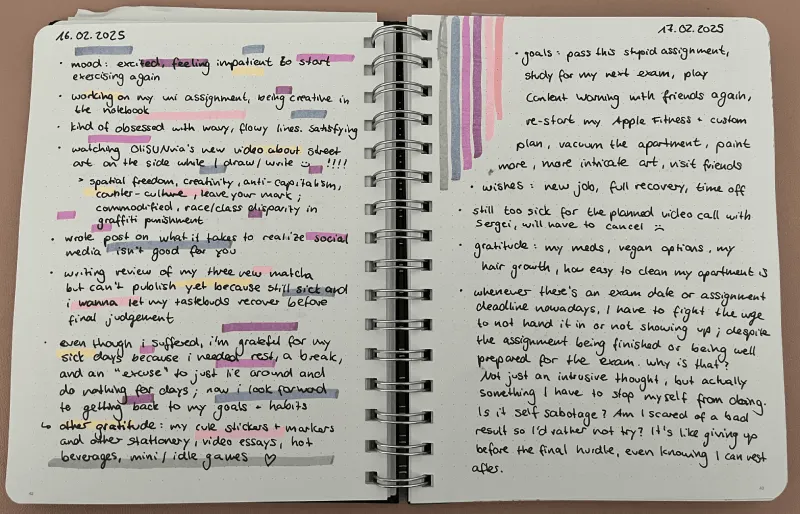 16.02.2025
· mood: excited, feeling impatient to start
exercising again
· working on my uni assignment, being creative in
the notebook
· kind of obsessed with wavy, flowy lines. satisfying
· watching OliSUNvia's new video about street
art on the side while I draw/write !!!!
> spatial freedom, creativity, anti-capitalism,
counter-culture, leave your mark;
commodified, race/class disparity in
graffiti punishment
· wrote post on what it takes to realize social
media isn't good for you
· writing review of my three new matcha
but can't publish yet because still sick and
i wanna let my tastebuds recover before
final judgement
· even though i suffered, i'm grateful for my
sick days because i needed rest, a break,
and an "excuse" to just lie around and
do nothing for days; now i look forward
to getting back to my goals + habits
↳ other gratitude: my cute stickers + markers
and other stationery, video essays, hot
beverages, mini/idle games ♡
17.02.2025
· goals: pass this stupid assignment,
study for my next exam, play
Content Warning with friends again,
re-start my Apple Fitness + custom
plan, vacuum the apartment, paint
more, more intricate art, visit friends
· wishes: new job, full recovery, time off
· still too sick for the planned video call with
Sergei, will have to cancel :(
· gratitude: my meds, vegan options, my
hair growth, how easy to clean my apartment is
· whenever there's an exam date or assignment
deadline nowadays, I have to fight the urge
to not hand it in or not showing up; despite
the assignment being finished or being well
prepared for the exam. why is that?
Not just an intrusive thought, but actually
something I have to stop myself from doing.
Is it self sabotage? Am I scared of a bad
result so I'd rather not try? It's like giving up
before the final hurdle, even knowing I can rest
after.